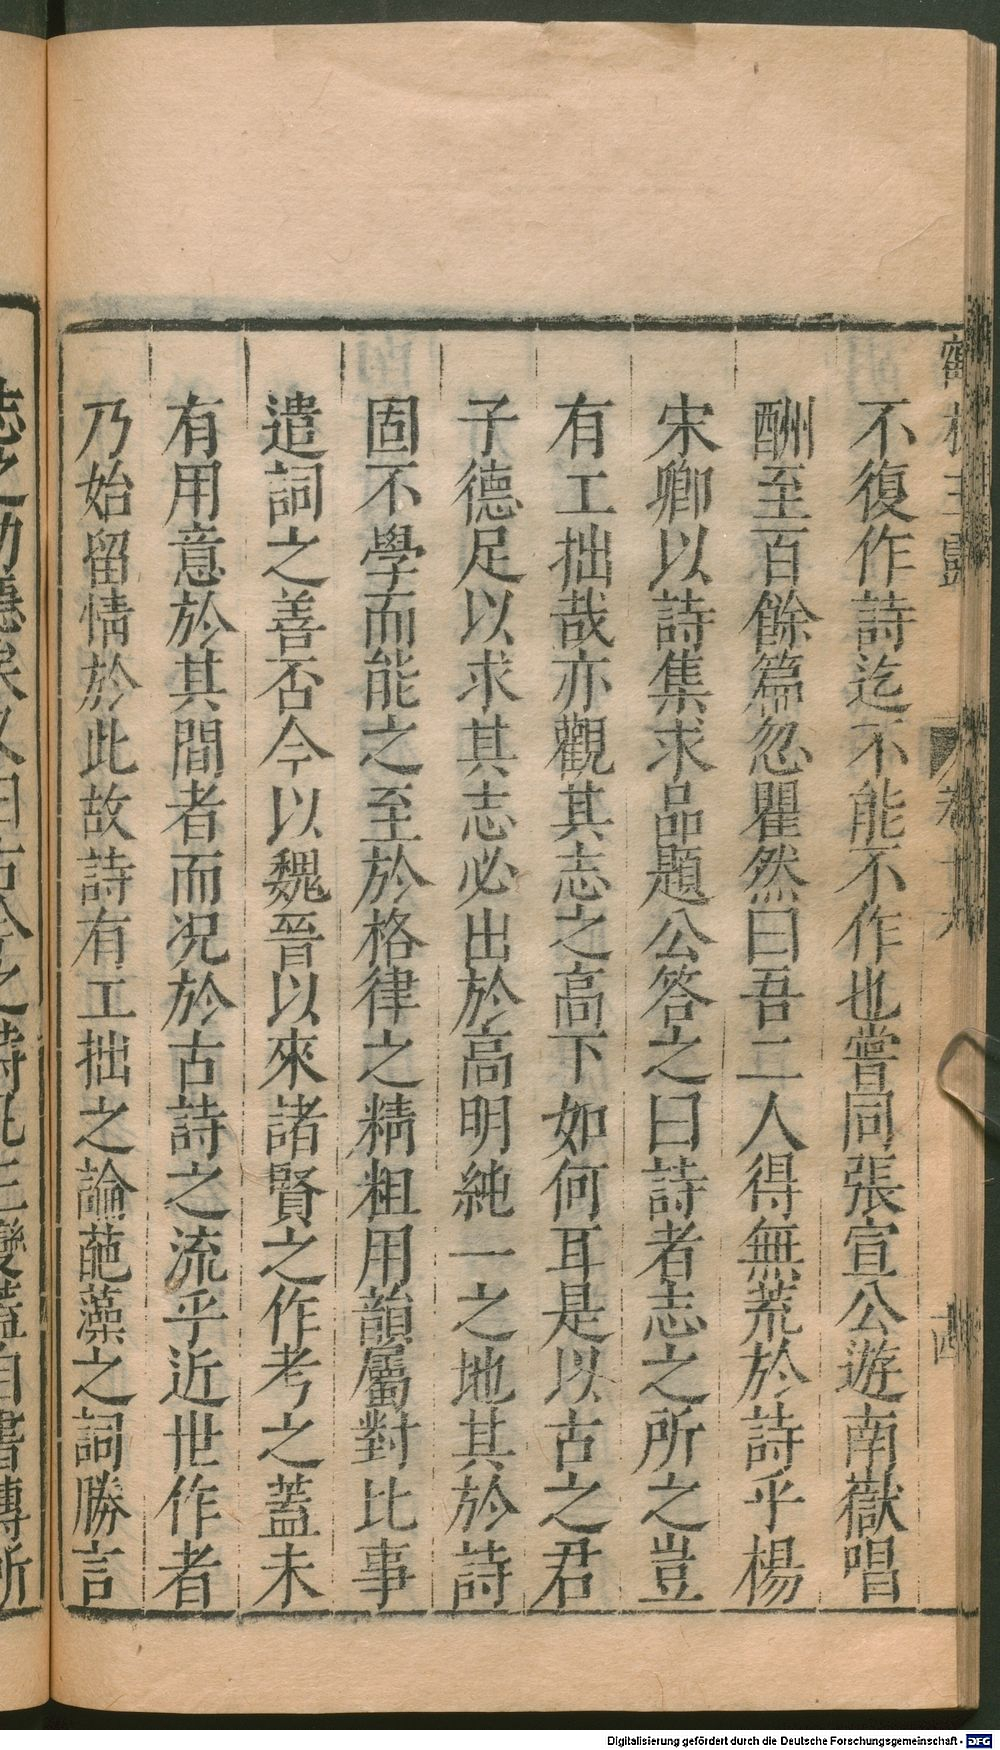 不復作詩迄不能不作也嘗同張宣公遊南嶽唱
酬至百餘篇忽瞿然曰吾二人得無荒於詩乎楊
宋卿以詩集求品題公答之曰詩者志之所之豈
有工拙哉亦觀其志之高下如何耳是以古之君
子德足以求其志必出於高明純一之地其於詩
固不學而能之至於格律之精粗用韻屬對比事
遣詞之善否今以魏晉以來諸賢之作考之蓋未
有用意於其間者而況於古詩之流乎近世作者
乃始留情於此故詩有工拙之論葩藻之詞勝言
Digitalisierung gefördert durch die Deutsche Forschungsgemeinschaft - DFG